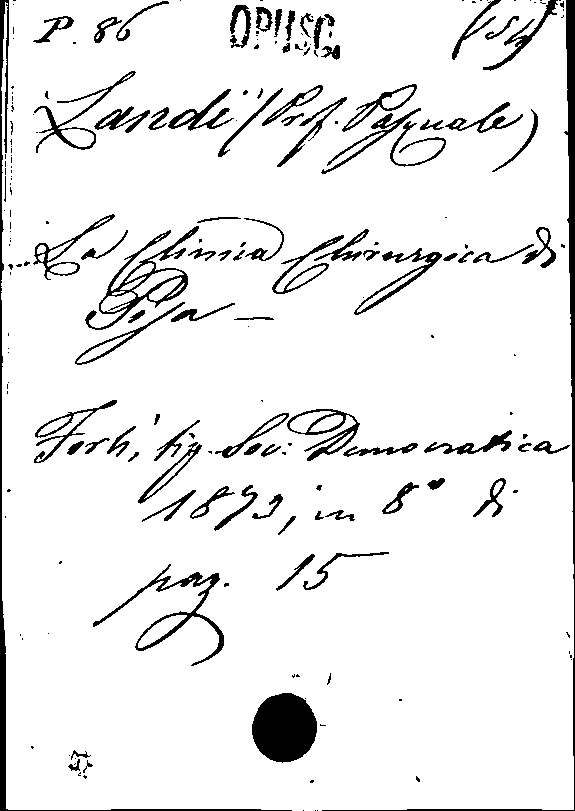 P. 86 OPUSC. (54)
Landi (Prf. Pasquale)
La Clinica Chirurgica di
Pisa —
Forlì, tip. Soc: Democratica
1873, in 8° di
pag. 15